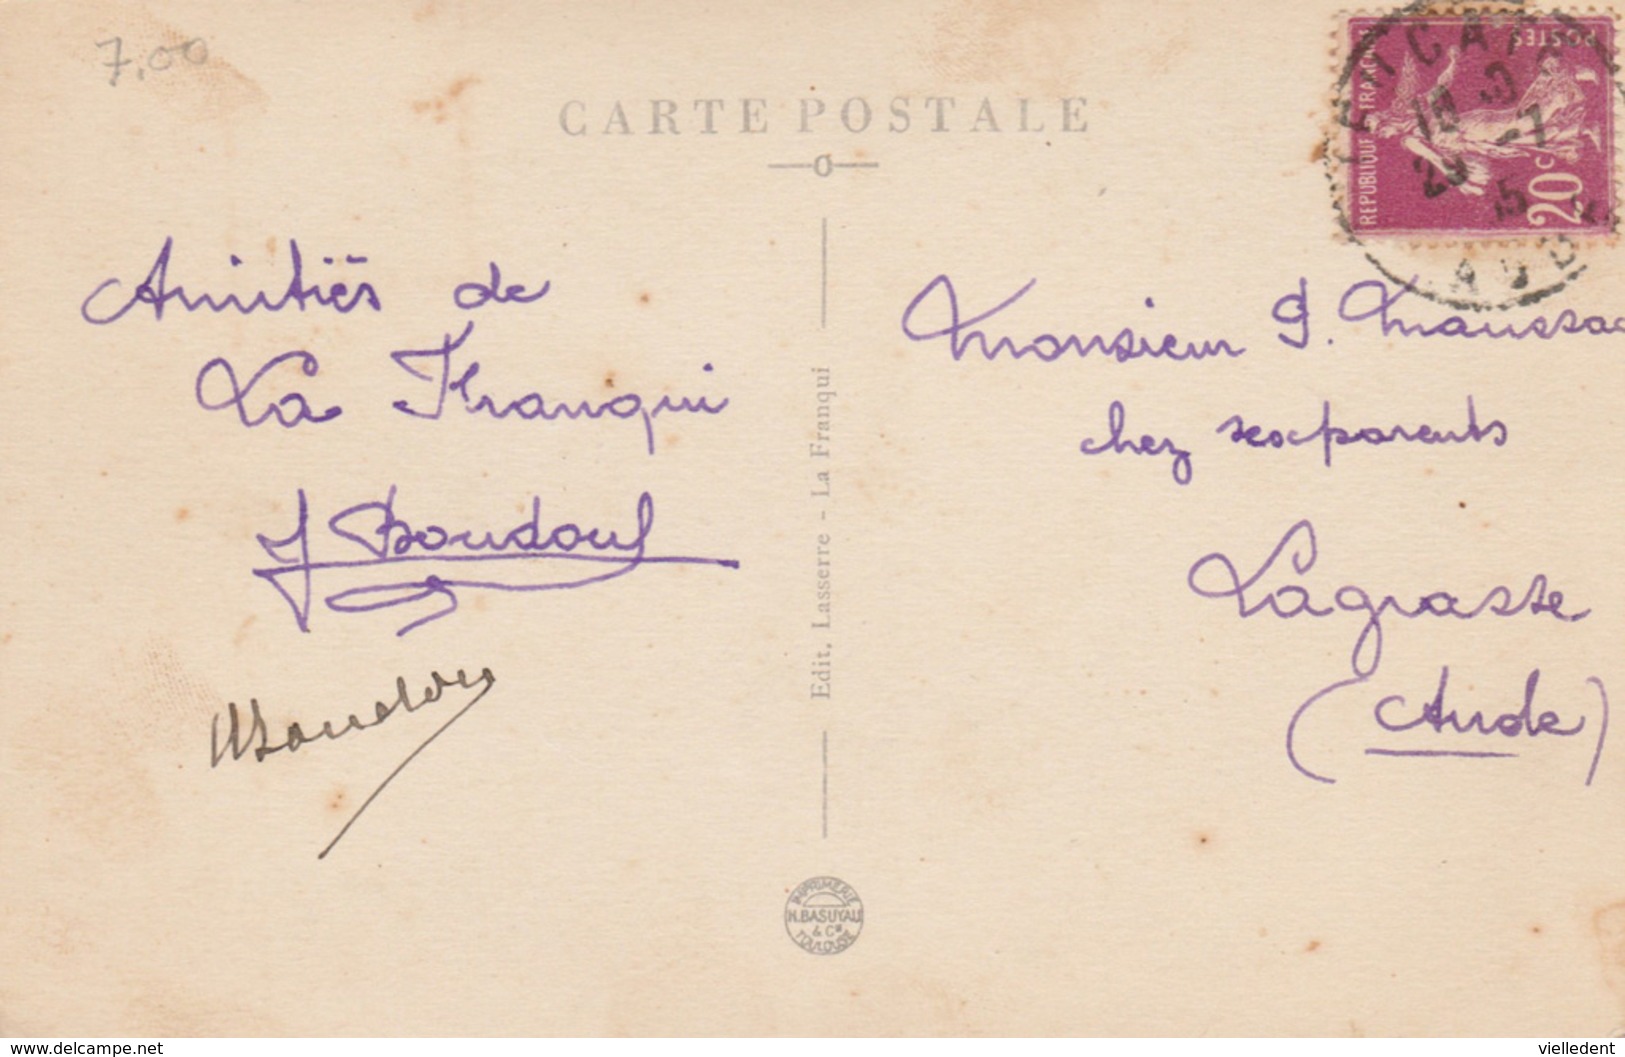 7,00
CARTE POSTALE
REPUBLIQUE FRANÇAISE
POSTES
20 c
AUDE
Amitiés de
La Franqui
J Boudoul
Monsieur P. Maussac
chez ses parents
Lagrasse
(Aude)
Edit. Lasserre - La Franqui
IMPRIMERIE
H. BASUYAU
& Cie
TOULOUSE
www.delcampe.net
vielledent